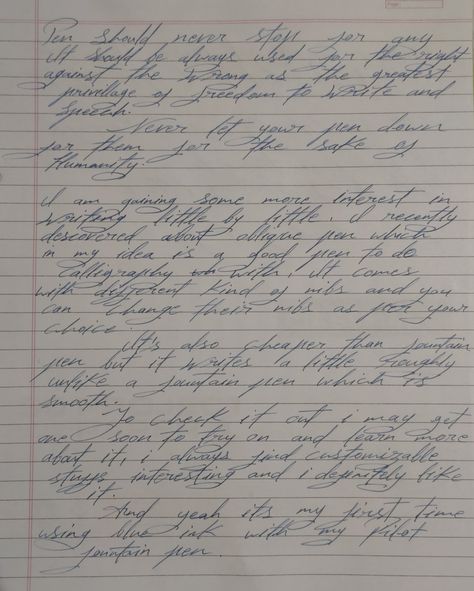 Pen should never stop for any
it should be always used for the right
against the wrong as the greatest
privillage of freedom to write and
speech.
Never let your pen down
for them for the sake of
Humanity.
I am gaining some more interest in
writing little by little. I recently
descovered about oblique pen which
in my idea is a good pen to do
Calligraphy with, it comes
with different kind of nibs and you
can change their nibs as per your
choice.
It's also cheaper than fountain
pen but it writes a little roughly
unlike a fountain pen which is
smooth.
To check it out i may get
one soon to try on and learn more
about it, i always find customizable
stuffs interesting and i definitely like
it.
And yeah its my first time
using blue ink with my Pilot
fountain pen.